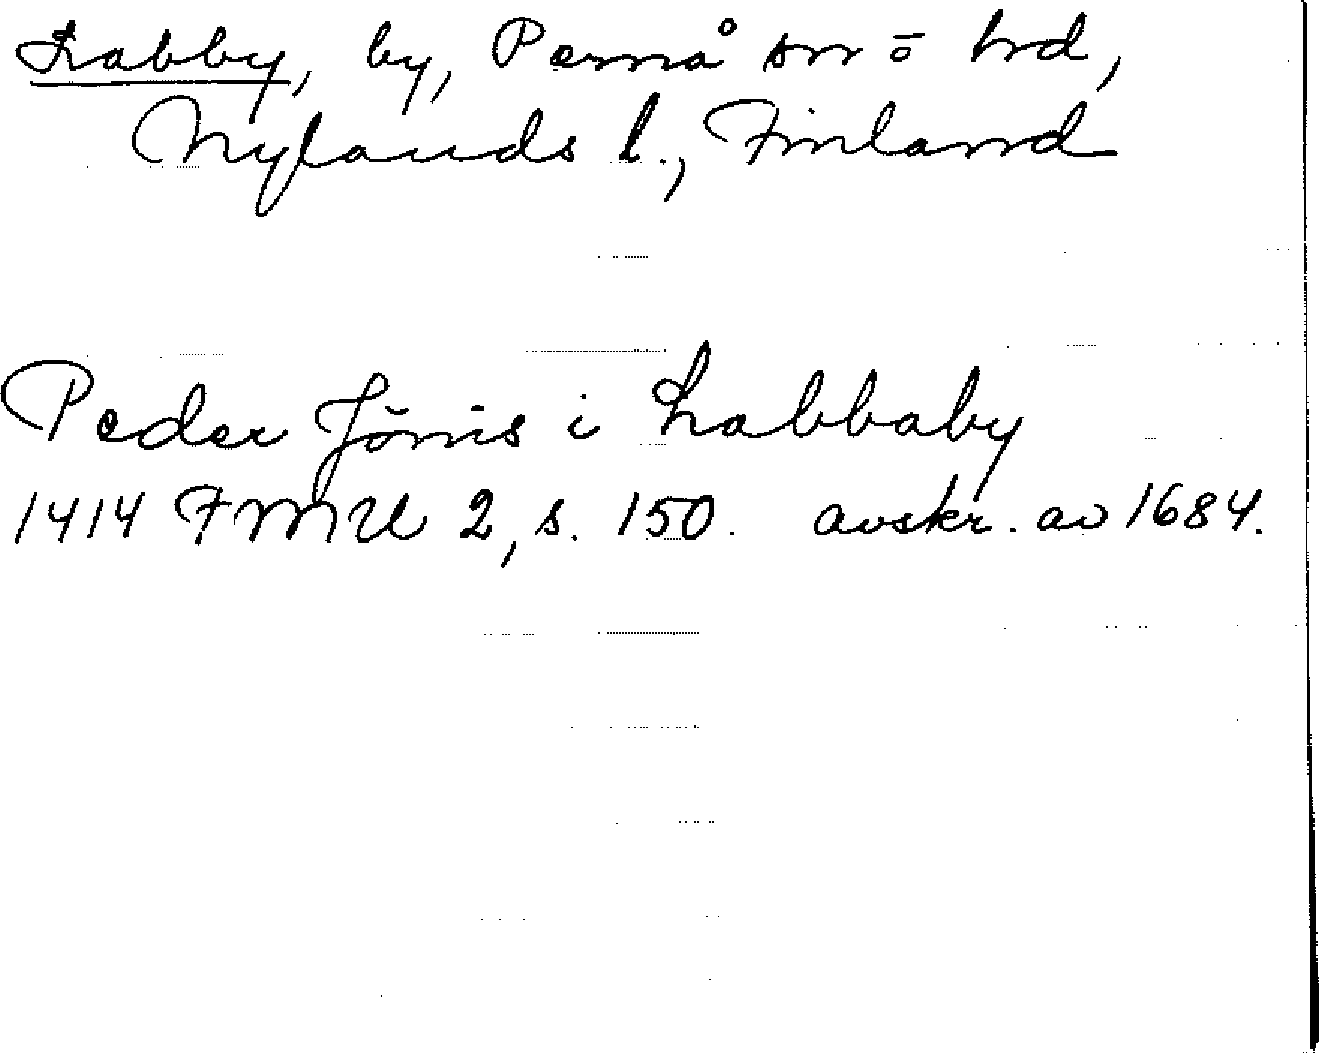 Labby, by, Pernå sn o hd,
Nylands l., Finland
Peder Jönis i Labbaby
1414 FMU 2, s. 150. avskr. av 1684.